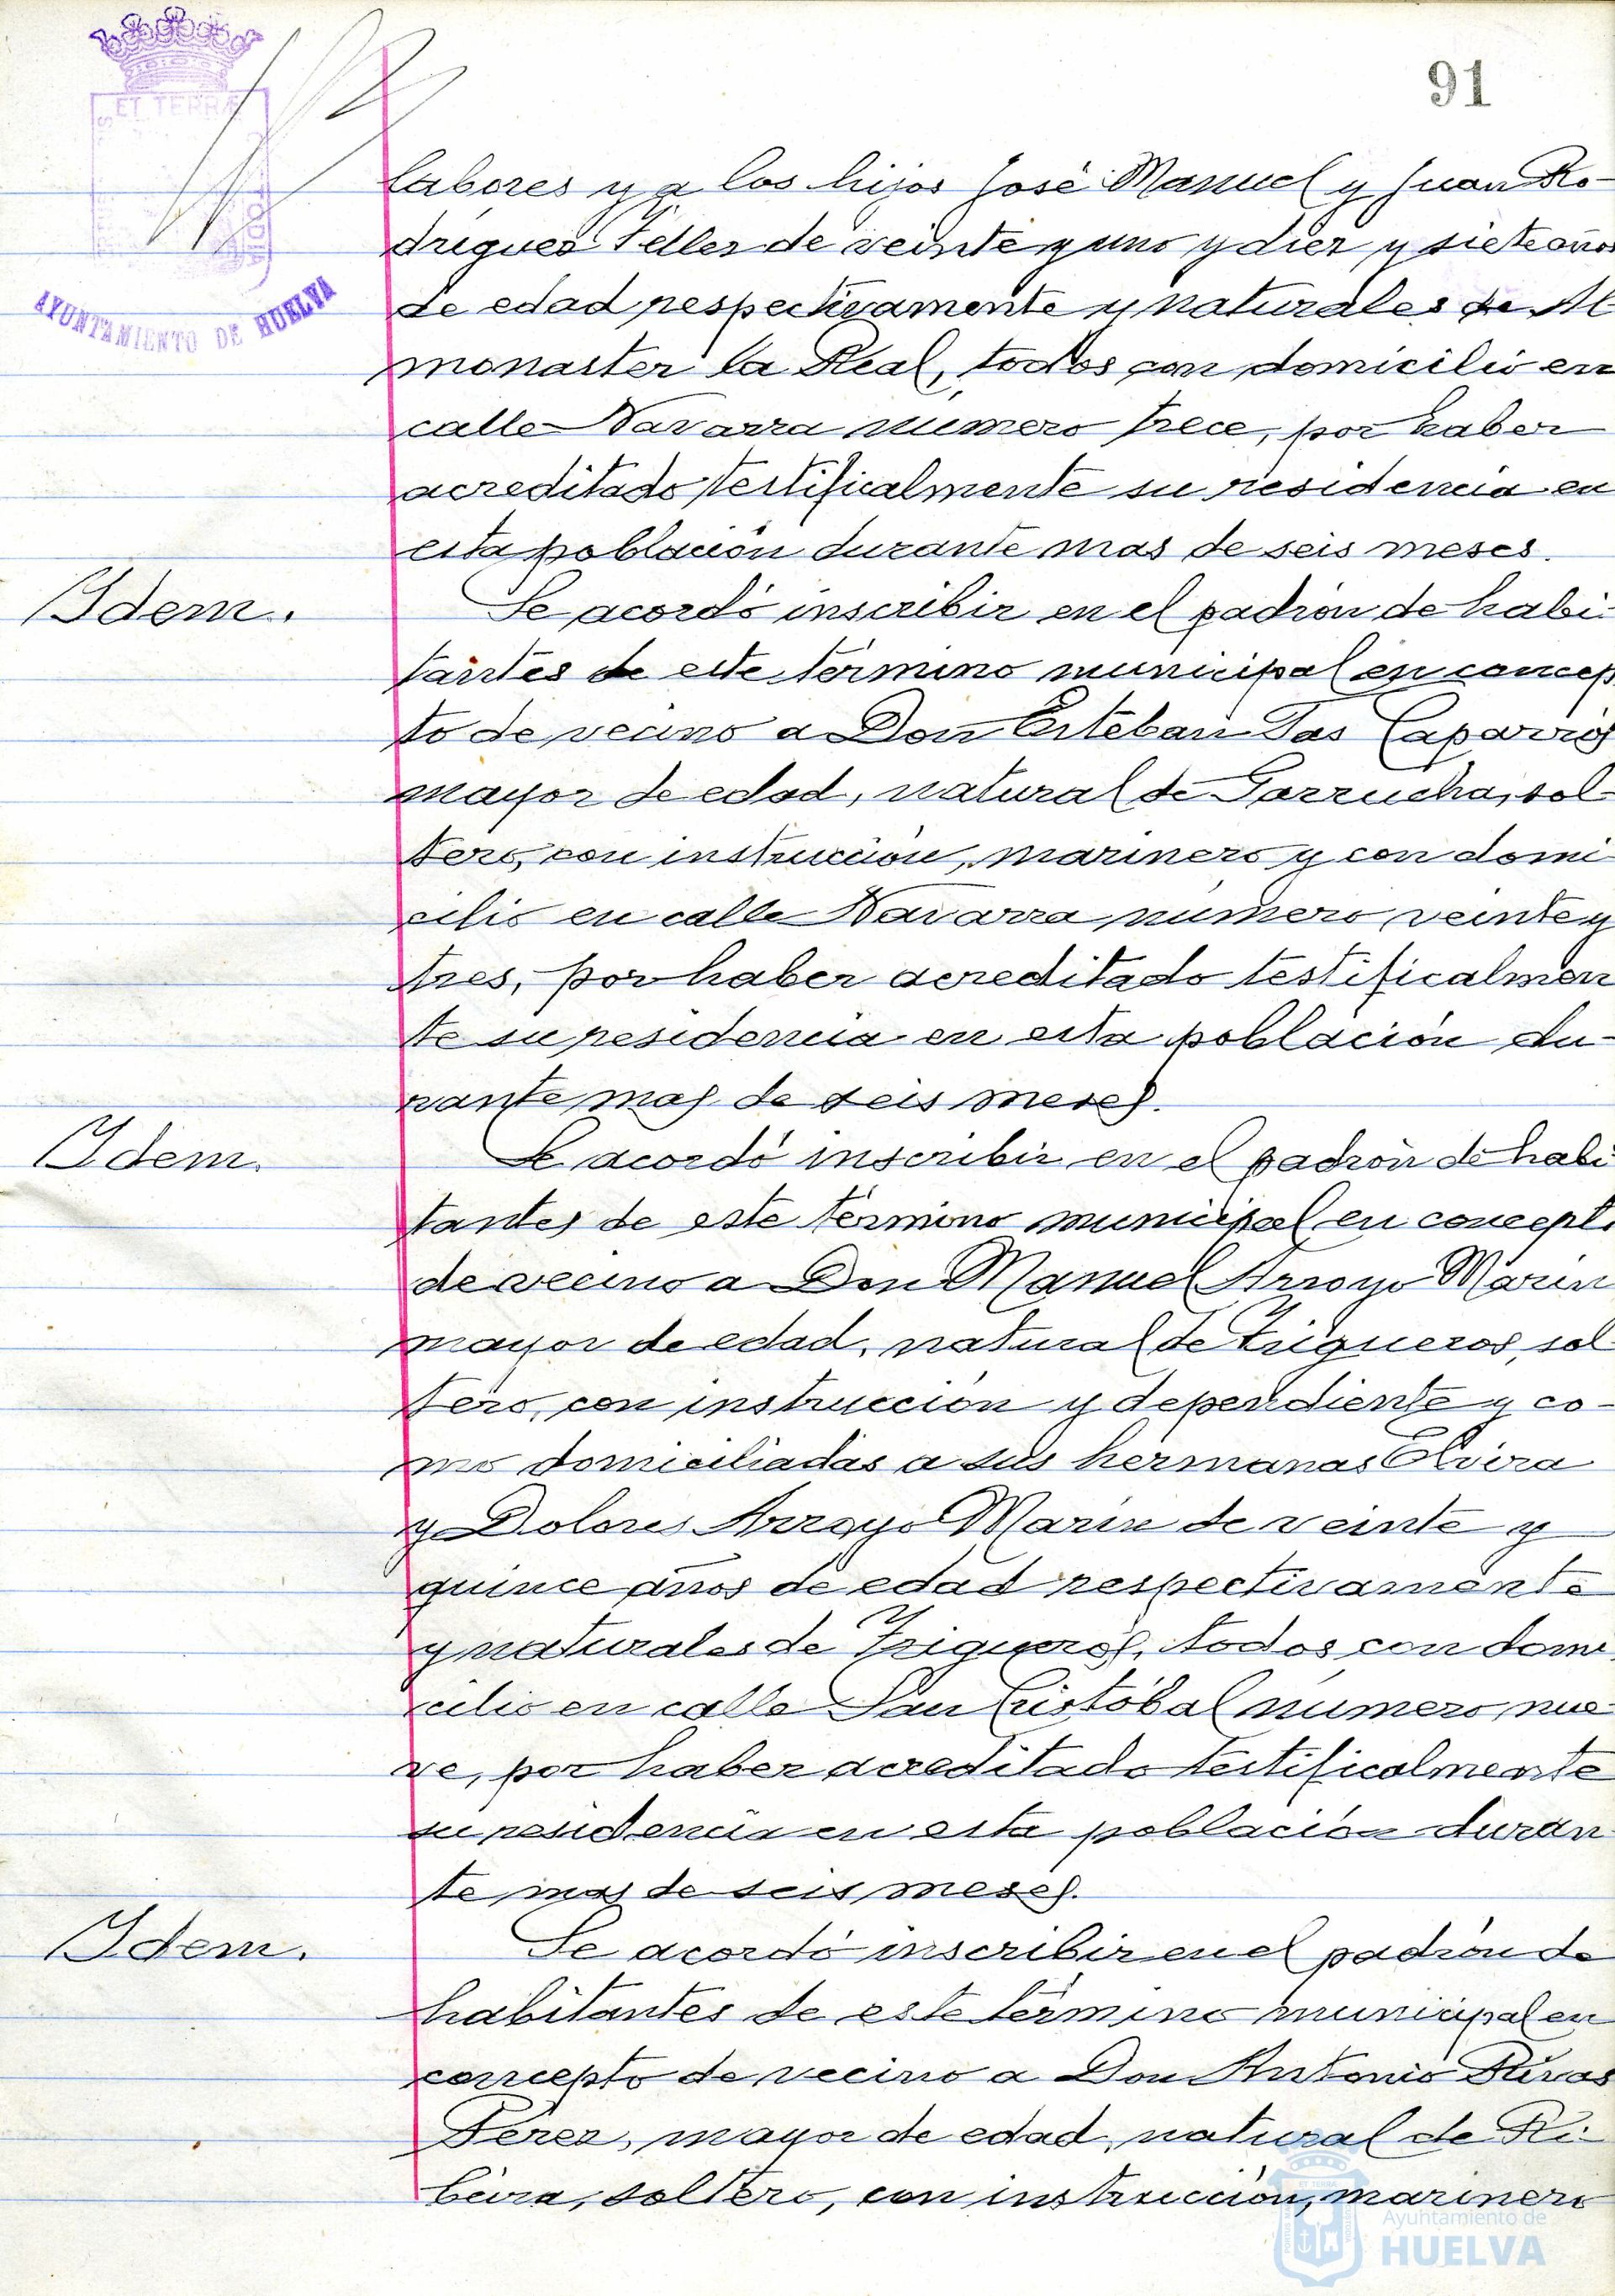 91
ET TERRÆ
AYUNTAMIENTO DE HUELVA
labores y a los hijos José Manuel y Juan Ro-
driguez Teller de veinte y uno y diez y siete años
de edad respectivamente y naturales de Al-
monaster la Real, todos con domicilio en
calle Navarra número trece, por haber
acreditado testificalmente su residencia en
esta población durante mas de seis meses.
Idem.
Se acordó inscribir en el padrón de habi-
tantes de este término municipal en concep
to de vecino a Don Esteban Tas Caparrós
mayor de edad, natural de Garrucha, sol-
tero, con instrucción, marinero y con domi
cilio en calle Navarra número veinte y
tres, por haber acreditado testificalmen
te su residencia en esta población du-
rante mas de seis meses.
Idem.
Se acordó inscribir en el padrón de habi
tantes de este término municipal en concepto
de vecino a Don Manuel Arroyo Marin
mayor de edad, natural de Trigueros, sol-
tero, con instrucción y dependiente y co-
mo domiciliadas a sus hermanas Elvira
y Dolores Arroyo Marin de veinte y
quince años de edad respectivamente
y naturales de Trigueros, todos con domi
cilio en calle San Cristóbal número nue-
ve, por haber acreditado testificalmente
su residencia en esta población duran
te mas de seis meses.
Idem.
Se acordó inscribir en el padrón de
habitantes de este término municipal en
concepto de vecino a Don Antonio Rivas
Pérez, mayor de edad, natural de Ri-
beira, soltero, con instrucción, marinero
Ayuntamiento de
HUELVA